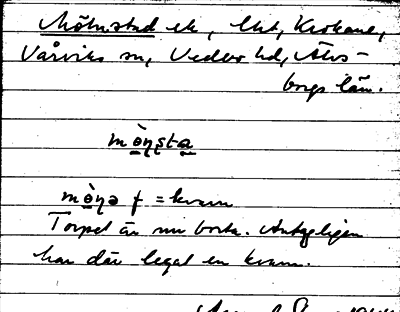 Mölnstad ek, Uht, Krokane,
Vårviks sn, Vedbo hd, Älvs-
borgs län.
mò̱n̥sta̱
mò̱n̥ə f = kvarn
Torpet är nu borta. Antagligen
har där legat en kvarn.